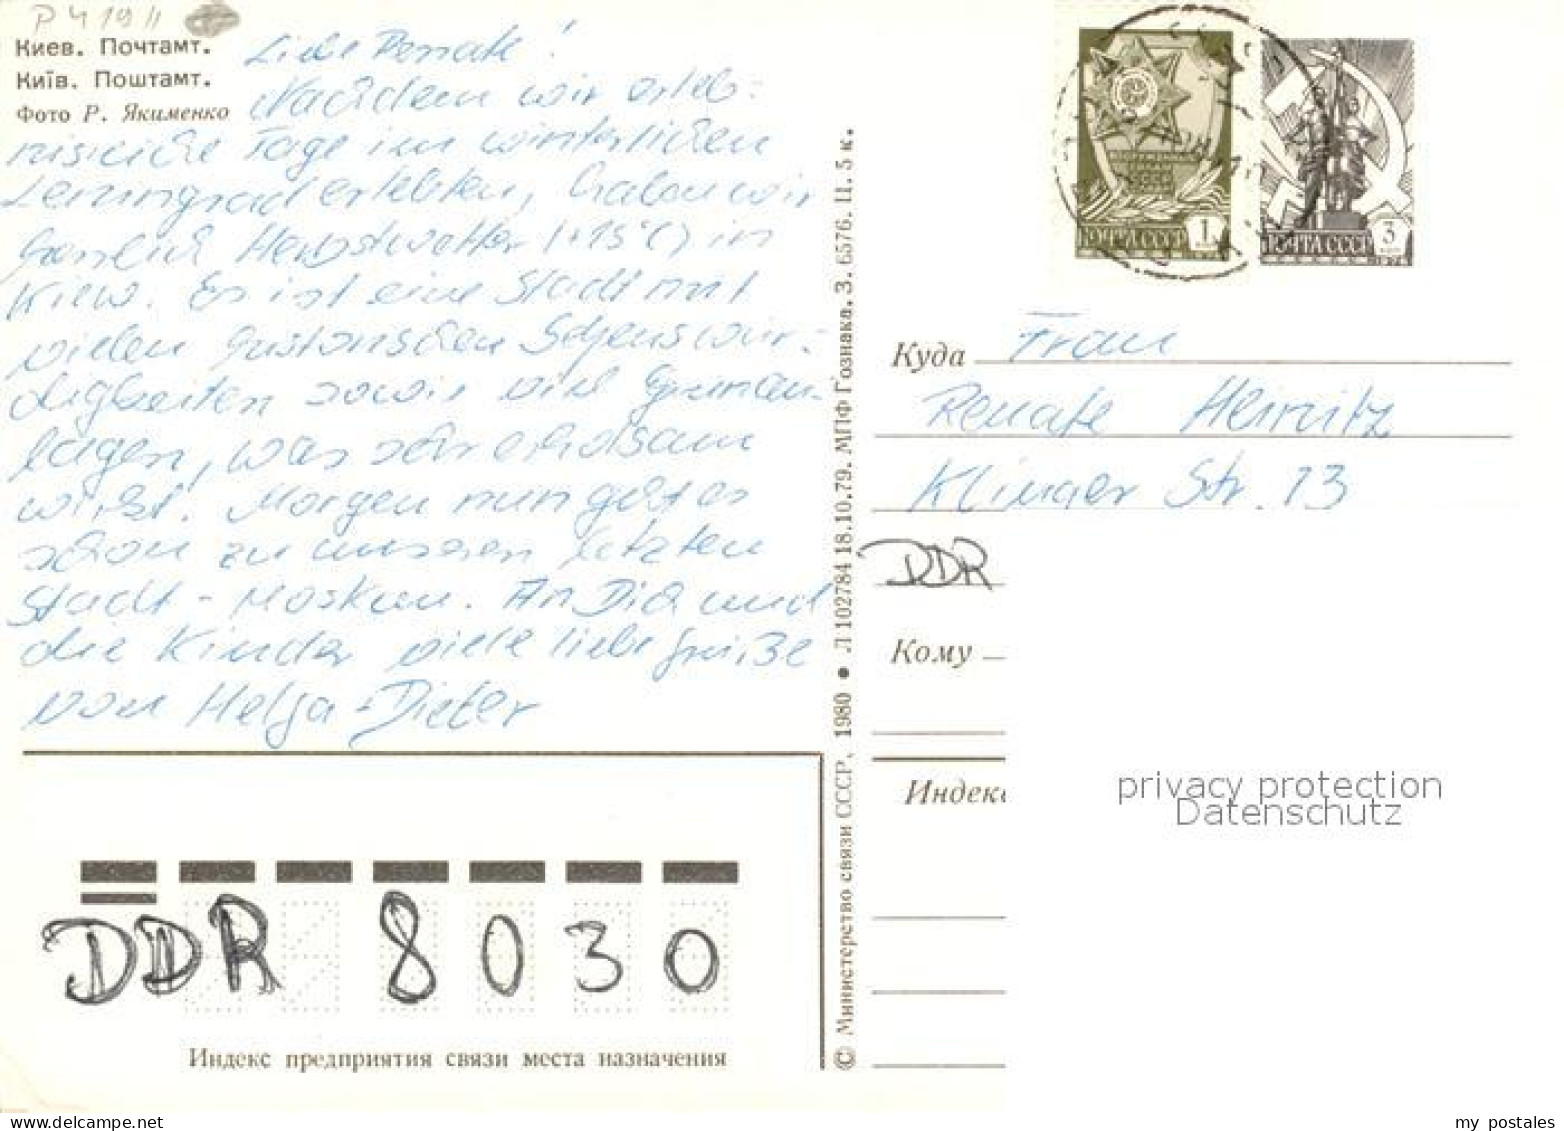 P 4 19 11
Киев. Почтамт.
Київ. Поштамт.
Фото Р. Якименко
Liebe Renate!
Nachdem wir erleb-
nisreiche Tage im winterlichen
Leningrad erlebten, haben wir
herrlich Herbstwetter (+15°C) in
Kiew. Es ist eine Stadt mit
vielen historischen Sehenswür-
digkeiten sowie viel Grünan-
lagen, was sehr erholsam
wirkt. Morgen nun geht es
schon zu unserer letzten
Stadt - Moskau. An Dich und
die Kinder viele liebe Grüße
von Helga + Dieter
ПОЧТА СССР 1
ПОЧТА СССР 3
Куда Frau
Renate Heinitz
Klinger Str. 13
DDR
Кому
Индекс
© Министерство связи СССР, 1980 • Л 102784 18.10.79. МПФ Гознака. З. 6576. Ц. 5 к.
DDR 8030
Индекс предприятия связи места назначения
privacy protection
Datenschutz
my postales